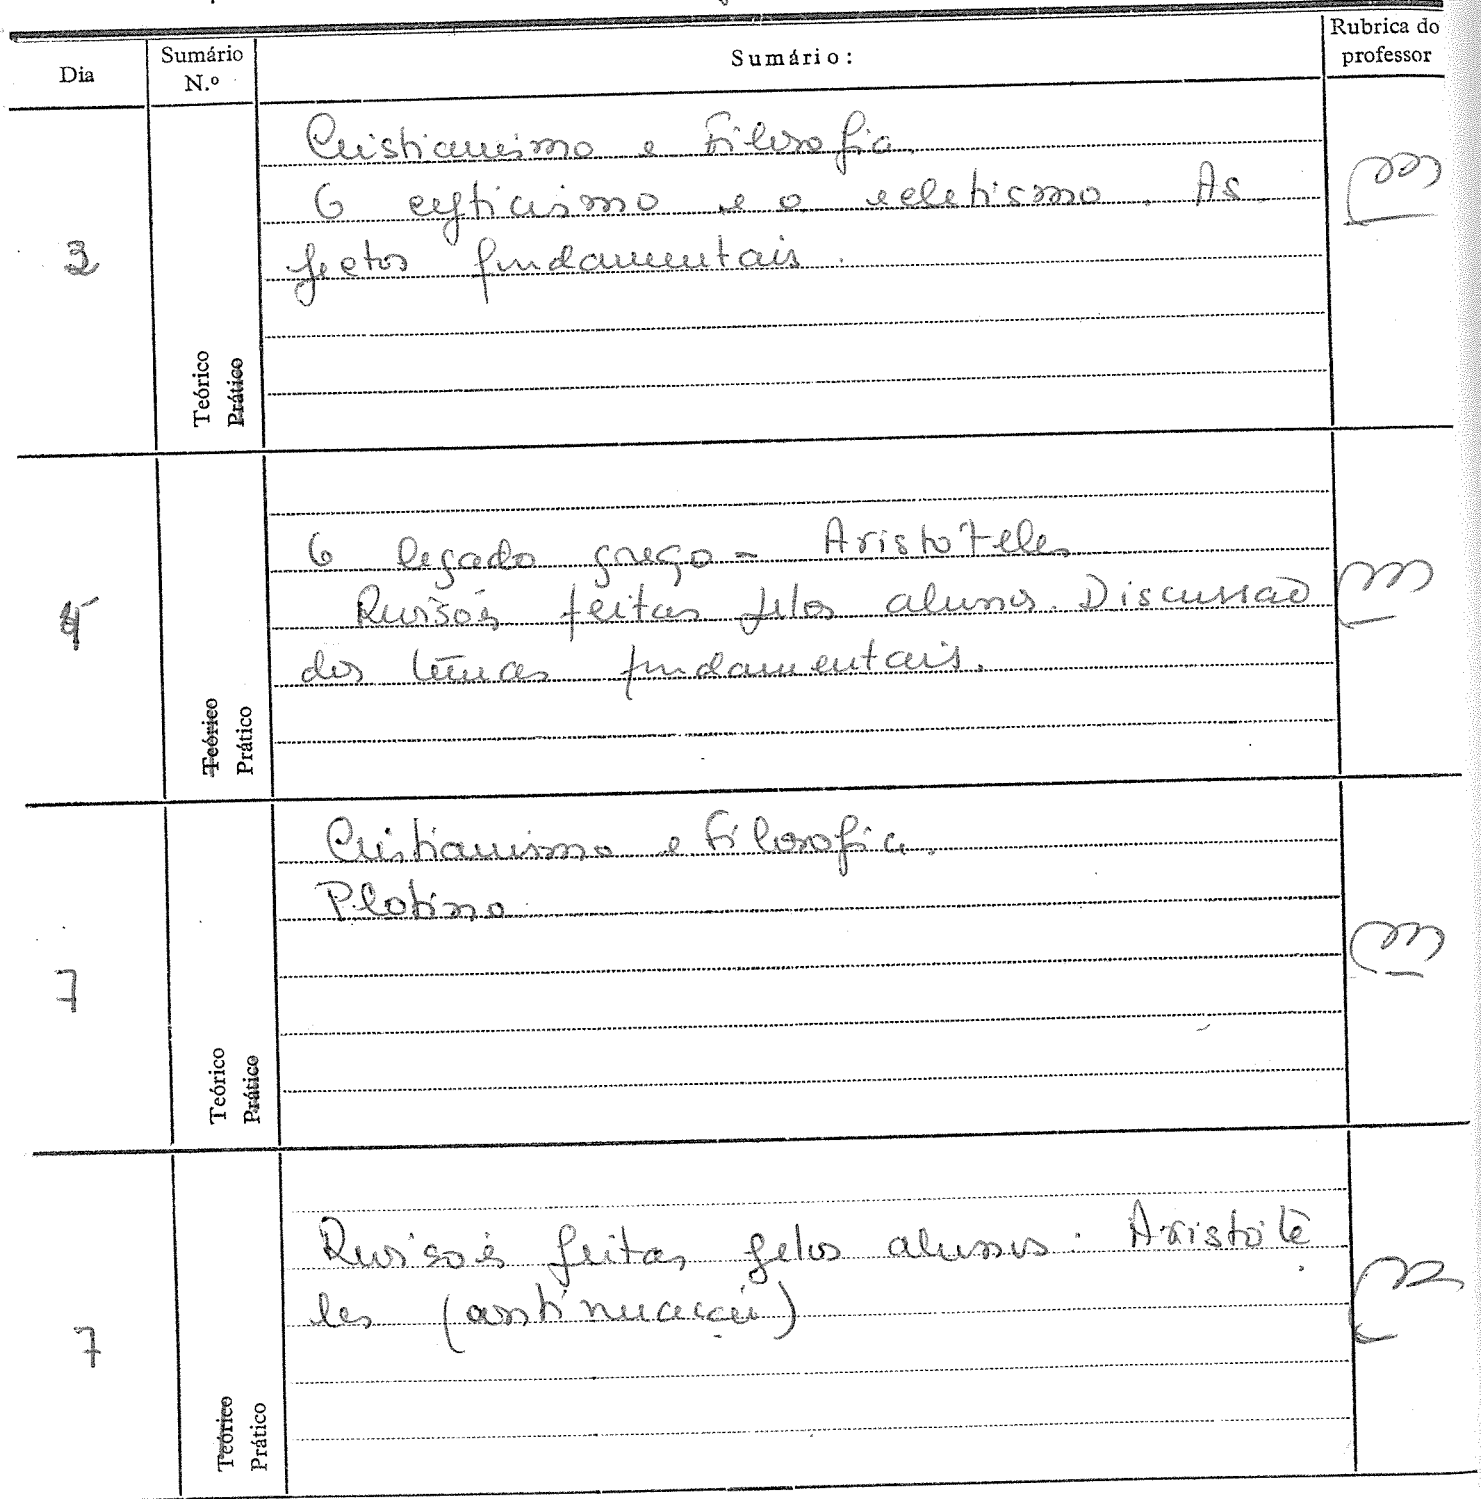 Dia
Sumário N.º
Sumário:
Rubrica do professor
3
Cristianismo e Filosofia.
O cepticismo e o ecletismo. As
fundamentais.
Teórico
Prático
O legado grego - Aristóteles
Revisões feitas pelos alunos. Discussão
dos temas fundamentais.
Teórico
Prático
7
Cristianismo e Filosofia.
Plotino
Teórico
Prático
7
Revisões feitas pelos alunos. Aristóte
les (continuação)
Teórico
Prático